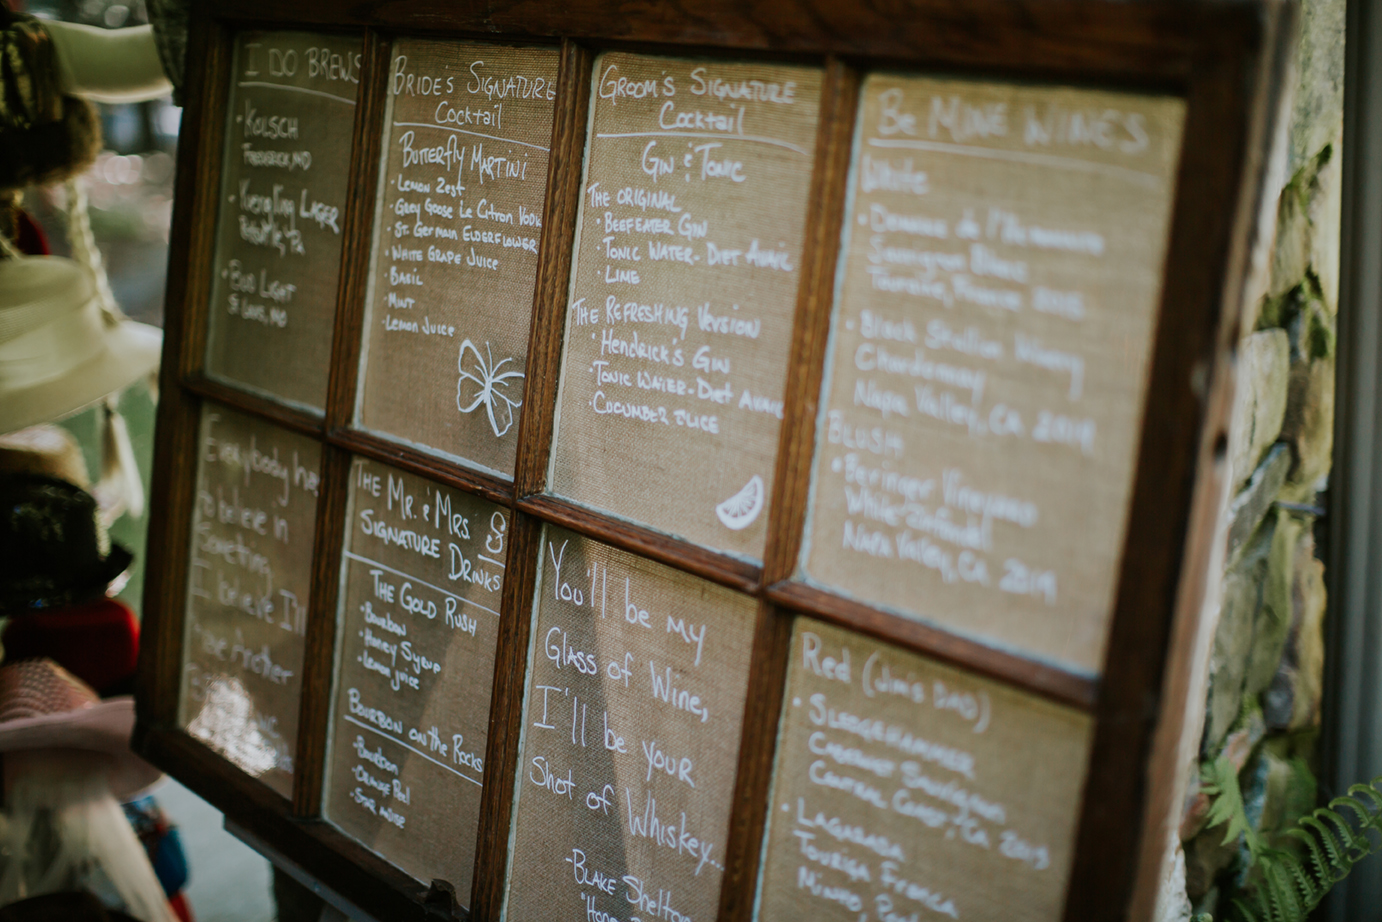 I DO BREWS
• KOLSCH
FREDERICK, MD
• Yuengling LAGER
Pottsville, PA
• BUD LIGHT
St Louis, MO
BRIDE'S SIGNATURE
Cocktail
BUTTERFLY MARTINI
• Lemon Zest
• Grey Goose Le Citron Vodk
• ST. GERMAN ELDERFLOWER
• WHITE GRAPE JUICE
• BASIL
• MINT
• Lemon Juice
GROOM'S SIGNATURE
Cocktail
GIN & TONIC
THE ORIGINAL
• BEEFEATER GIN
• TONIC WATER - DIET AVAIL
• LIME
THE REFRESHING VERSION
• HENDRICK'S GIN
• TONIC WATER - DIET AVAIL
• CUCUMBER SLICE
Be MINE WINES
White
• Domaine de l'
Sauvignon Blanc
Touraine, France 2018
• Black Stallion Winery
Chardonnay
Napa Valley, CA 2014
BLUSH
• Beringer Vineyards
White Zinfandel
Napa Valley, CA 2014
Everybody has
to believe in
Someting
I believe I'll
have Another
THE MR. & MRS. 8
SIGNATURE DRINKS
THE GOLD RUSH
• Bourbon
• Honey Syrup
• Lemon Juice
BOURBON ON the Rocks
• Bourbon
• ORANGE Peel
• STAR ANISE
You'll be my
GLASS OF WINE,
I'll be your
Shot of Whiskey...
- BLAKE Shelton
"Hone
Red (Jim's DAD)
• SLEDGEHAMMER
CABERNET Sauvignon
CENTRAL COAST, CA 2013
• LAGARADA
TOURIGA FRANCA
MINHO,